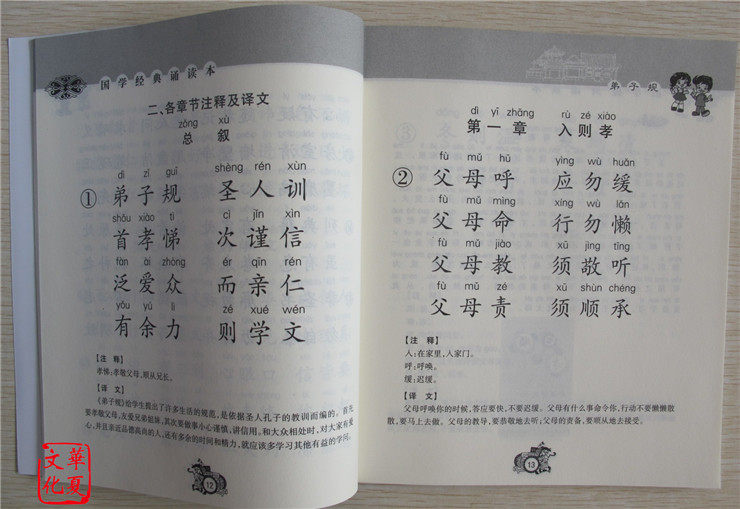 国学经典诵读本
二、各章节注释及译文
zǒng xù
总 叙
dì zǐ guī shèng rén xùn
① 弟子规 圣人训
shǒu xiào tì cì jǐn xìn
首孝悌 次谨信
fàn ài zhòng ér qīn rén
泛爱众 而亲仁
yǒu yú lì zé xué wén
有余力 则学文
【注 释】
孝悌:孝敬父母,顺从兄长。
【译 文】
《弟子规》给学生提出了许多生活的规范,是依据圣人孔子的教训而编的。首先
要孝敬父母,友爱兄弟姐妹,其次要做事小心谨慎,讲信用。和大众相处时,对大家有爱
心,并且亲近品德高尚的人,还有多余的时间和精力,就应该多学习其他有益的学问。
12
弟子规
dì yī zhāng rù zé xiào
第一章 入则孝
fù mǔ hū yìng wù huǎn
② 父母呼 应勿缓
fù mǔ mìng xíng wù lǎn
父母命 行勿懒
fù mǔ jiào xū jìng tīng
父母教 须敬听
fù mǔ zé xū shùn chéng
父母责 须顺承
【注 释】
入:在家里,人家门。
呼:呼唤。
缓:迟缓。
【译 文】
父母呼唤你的时候,答应要快,不要迟缓。父母有什么事命令你,行动不要懒懒散
散,要马上去做。父母的教导,要恭敬地去听;父母的责备,要顺从地去接受。
13
華夏
文化